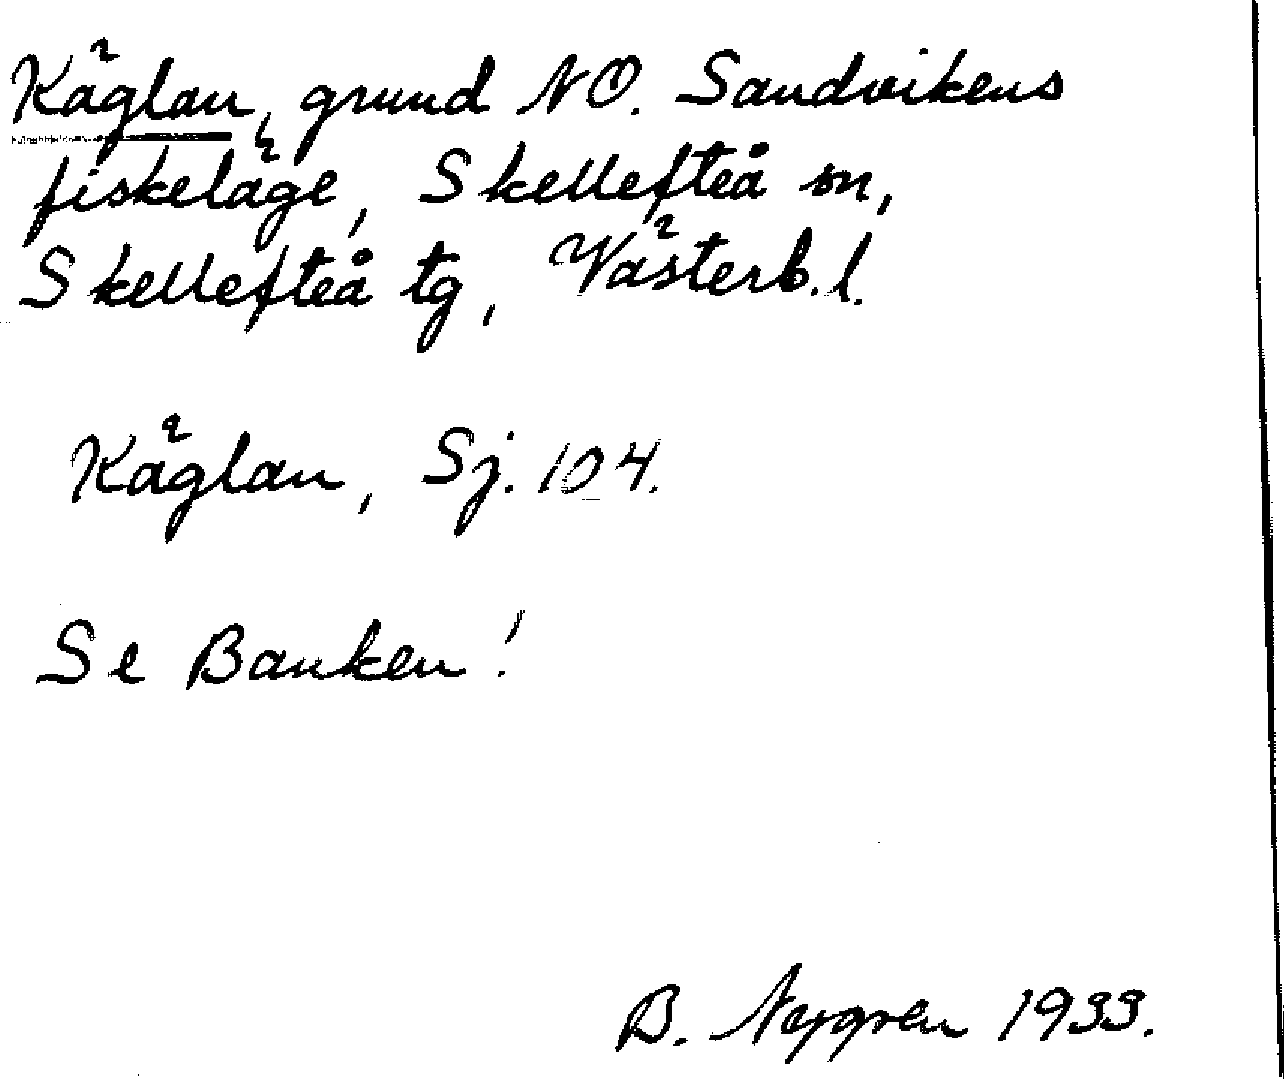 Käglan, grund NO. Sandvikens
fiskeläge, Skellefteå sn,
Skellefteå tg, Västerb. l.
Käglan, Sj. 104.
Se Banken!
B. Nygren 1933.